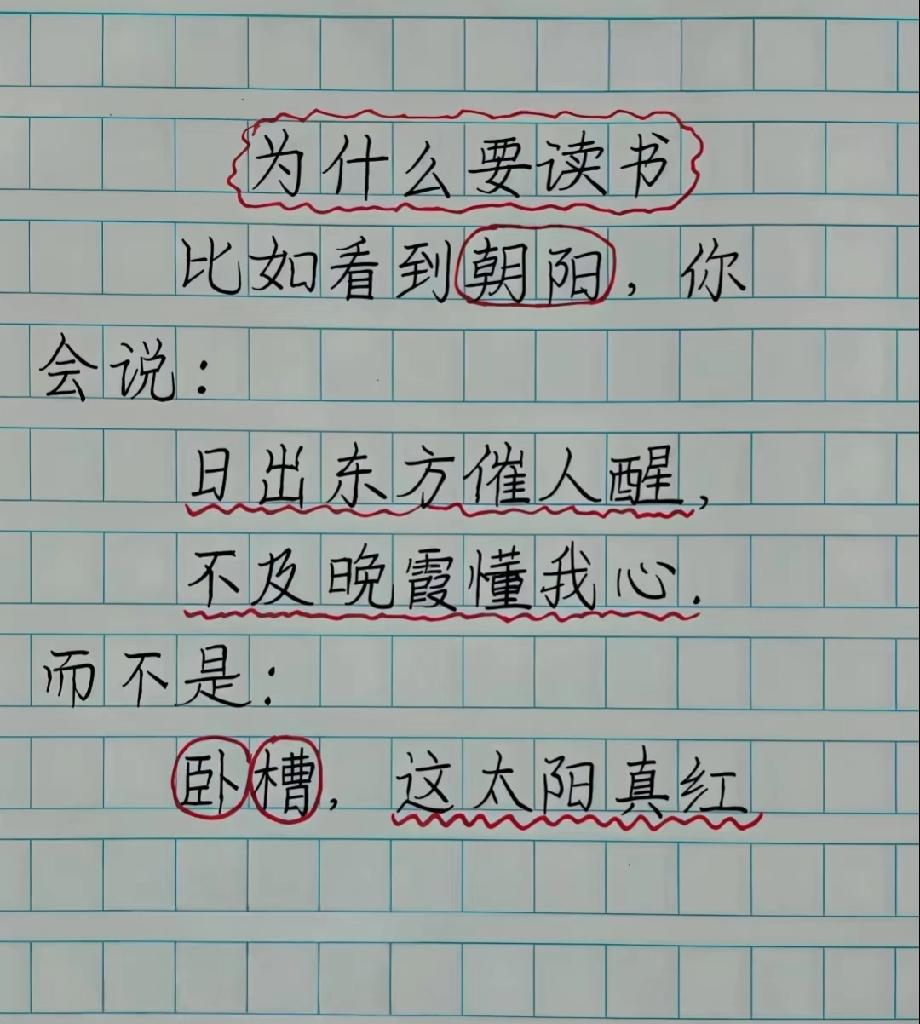 为什么要读书
比如看到朝阳，你
会说：
日出东方催人醒，
不及晚霞懂我心.
而不是：
卧槽，这太阳真红